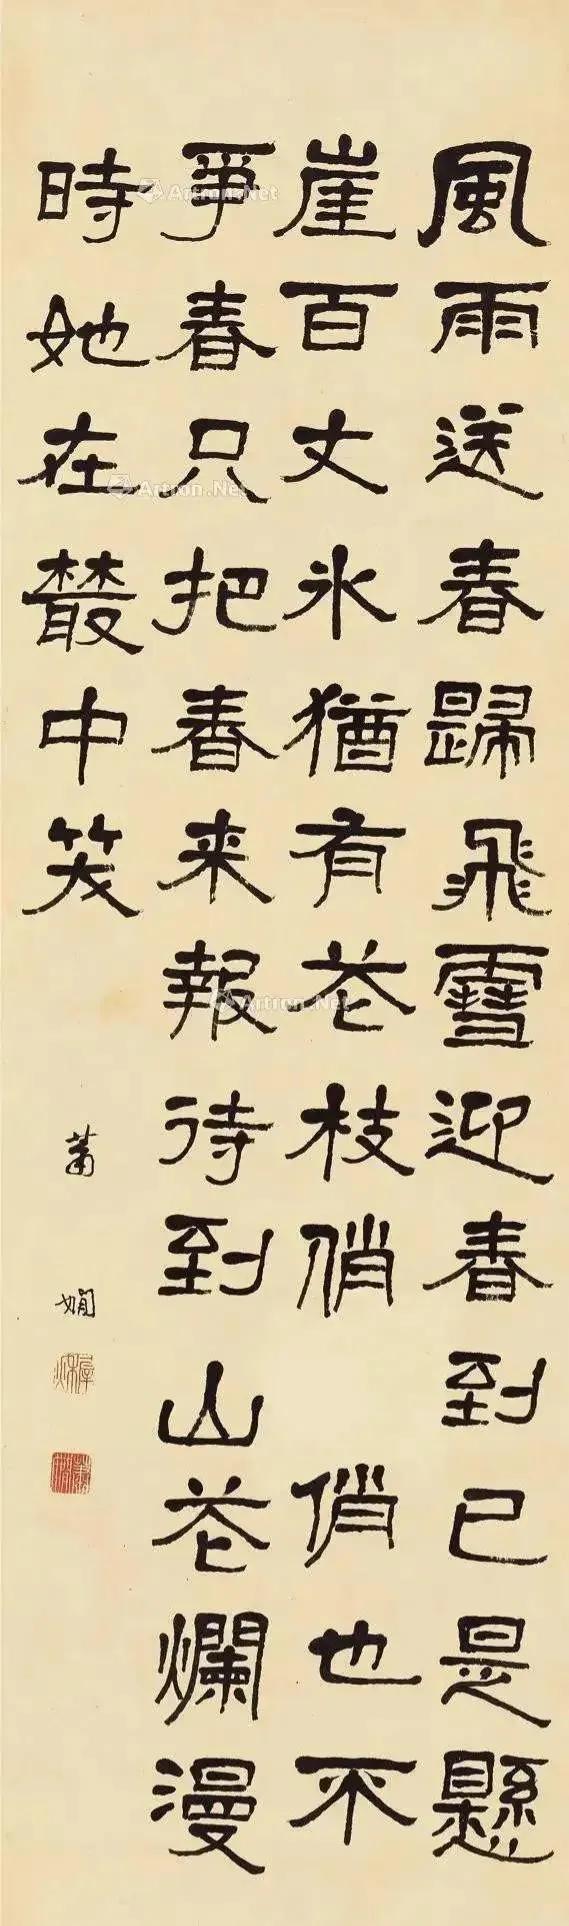 風雨送春歸飛雪迎春到已是懸
崖百丈冰猶有花枝俏俏也不
爭春只把春來報待到山花爛漫
時她在叢中笑
蕭嫻
Artron.Net
Artron.Net
Artron.Net